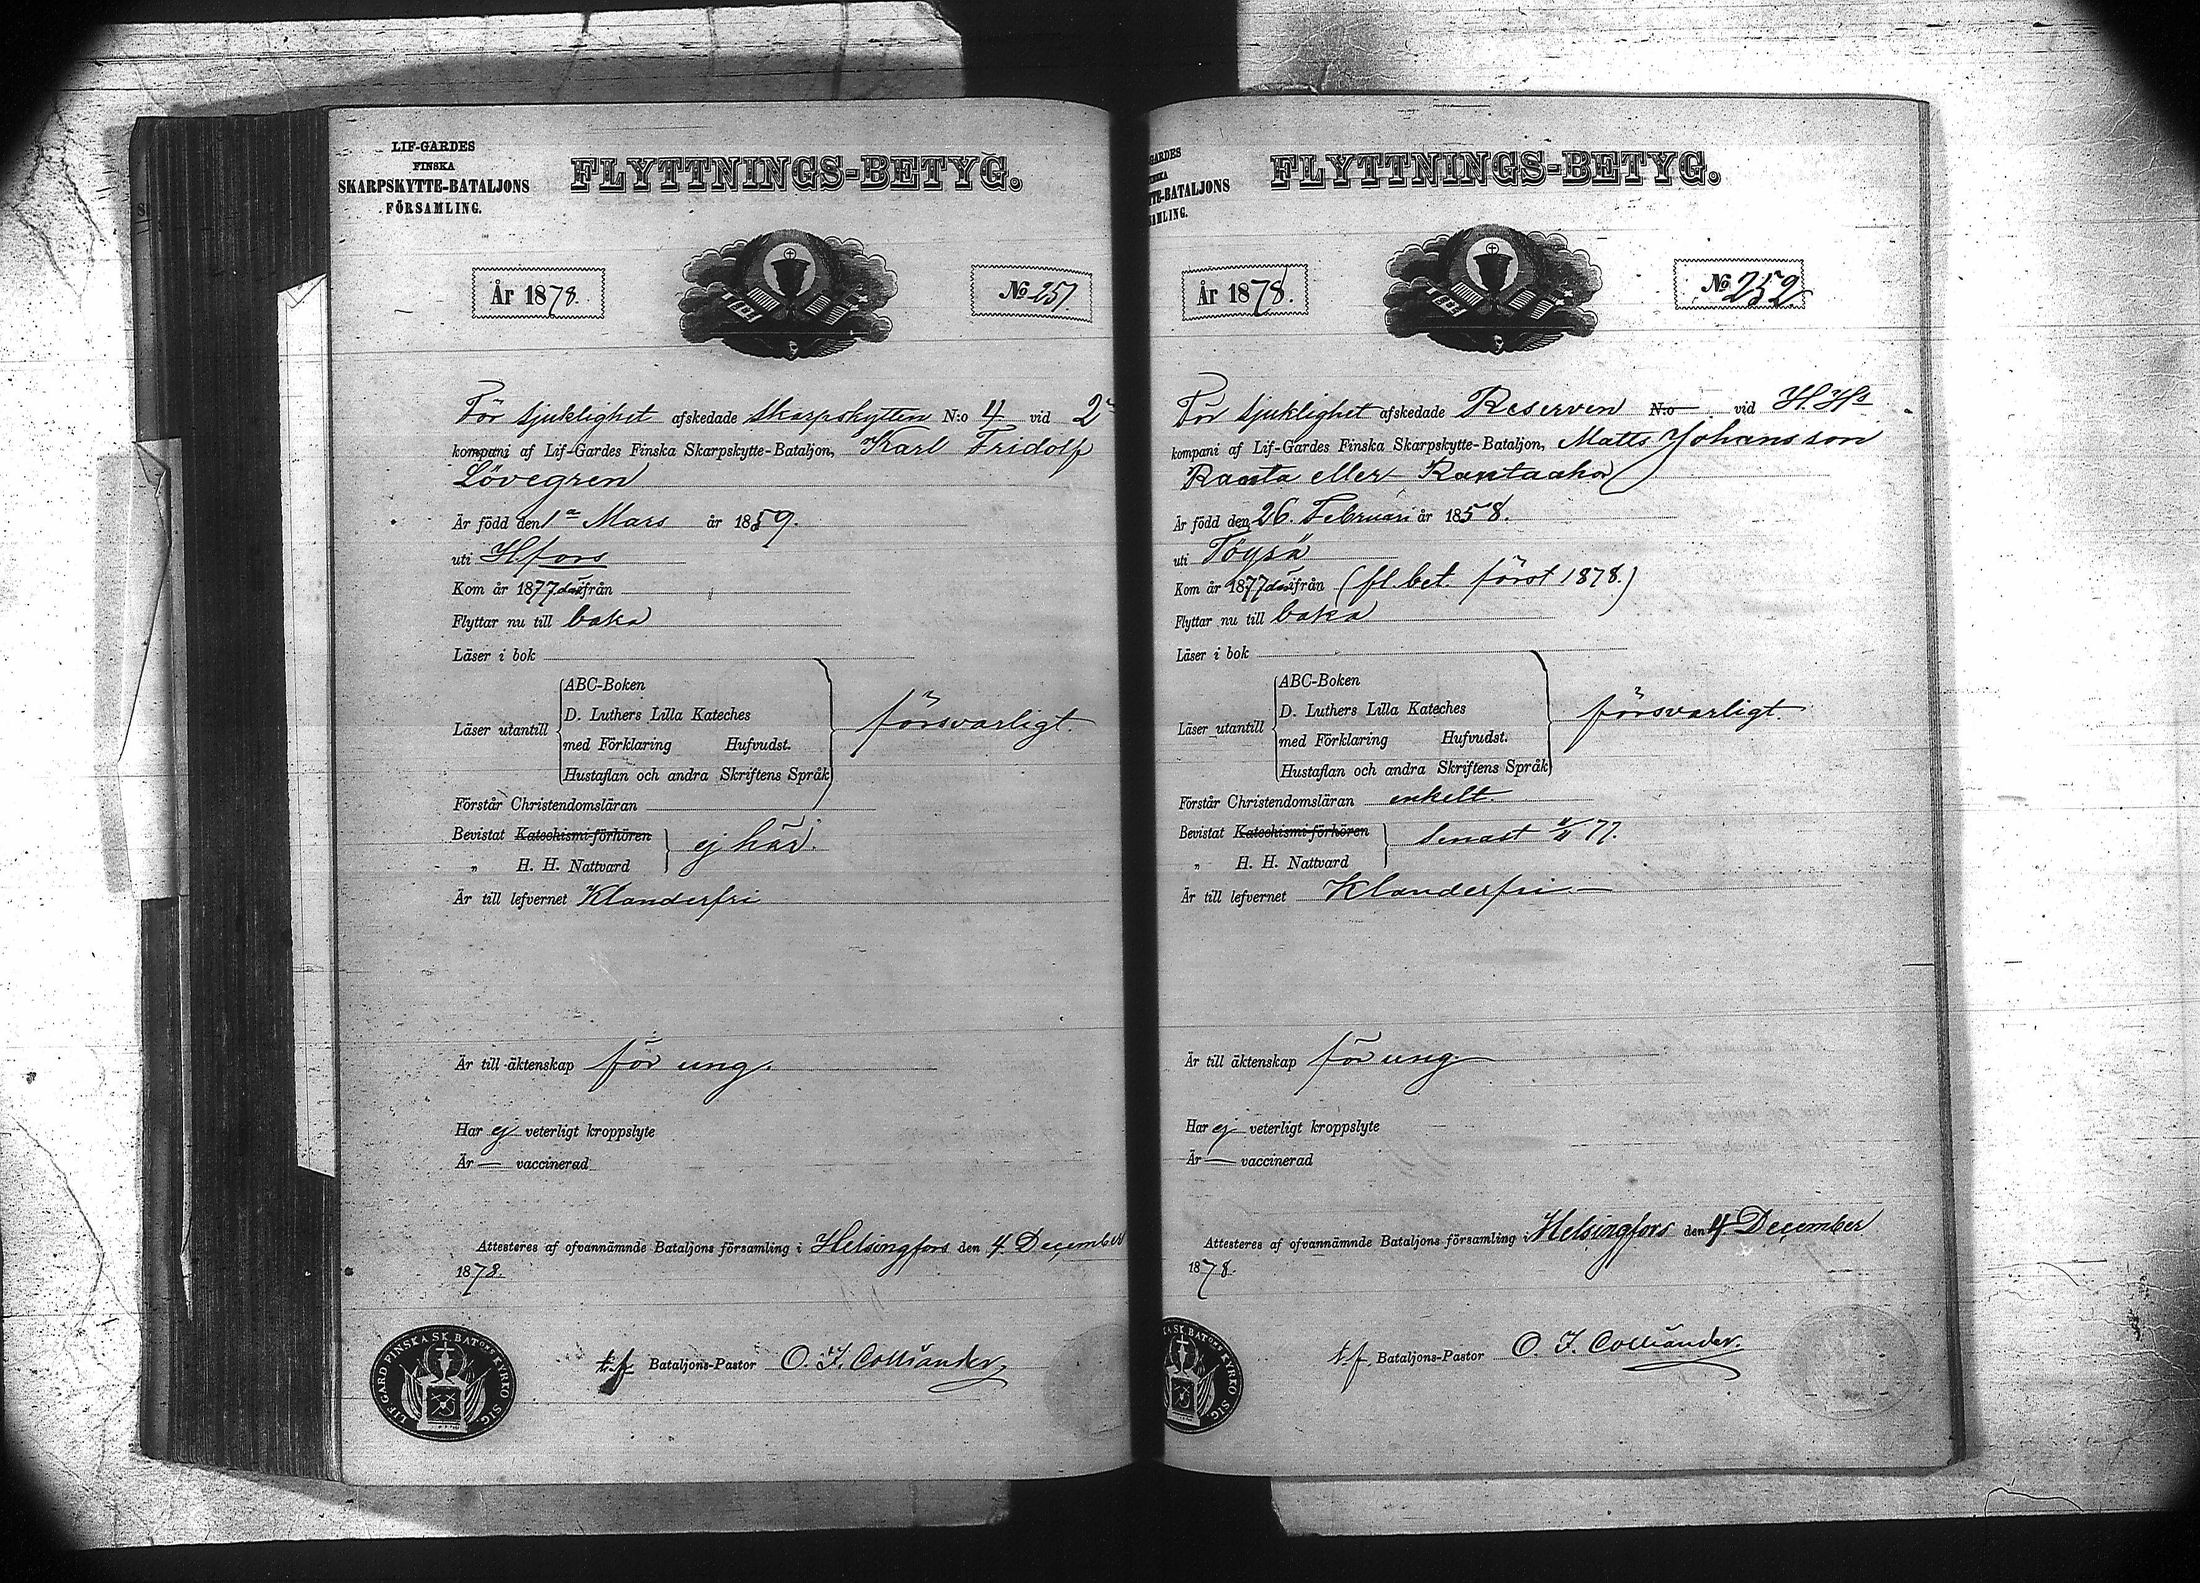 LIF-GARDES
FINSKA
SKARPSKYTTE-BATALJONS
FÖRSAMLING.
FLYTTNINGS-BETYG.
År 1878.
No 251
För sjuklighet afskedade skarpskytten N:o 4 vid 2
kompani af Lif-Gardes Finska Skarpskytte-Bataljon, Karl Fridolf
Lövegren
Är född den 1a Mars år 1859.
uti Hfors
Kom år 1877 därifrån
Flyttar nu till baka
Läser i bok
Läser utantill
ABC-Boken
D. Luthers Lilla Kateches
med Förklaring Hufvudst.
Hustaflan och andra Skriftens Språk
försvarligt.
Förstår Christendomsläran
Bevistat Katechismi-förhören
„ H. H. Nattvard
ej här.
Är till lefvernet Klanderfri
Är till äktenskap för ung.
Har ej veterligt kroppslyte
Är — vaccinerad
Attesteres af ofvannämnde Bataljons församling i Helsingfors den 4 December
1878.
t.f. Bataljons-Pastor O. F. Colliander
LIF-GARD FINSKA SK. BATONS KYRKO SIG.
GARDES
TTE-BATALJONS
AMLING.
FLYTTNINGS-BETYG.
År 1878.
No 252
För sjuklighet afskedade Reserven N:o vid
kompani af Lif-Gardes Finska Skarpskytte-Bataljon, Matts Johansson
Ranta eller Rantaaho
Är född den 26. Februari år 1858.
uti Töysä
Kom år 1877 därifrån (fl. bet. först 1878.)
Flyttar nu till baka
Läser i bok
Läser utantill
ABC-Boken
D. Luthers Lilla Kateches
med Förklaring Hufvudst.
Hustaflan och andra Skriftens Språk
försvarligt.
Förstår Christendomsläran enkelt.
Bevistat Katechismi-förhören
„ H. H. Nattvard
senast 77.
Är till lefvernet Klanderfri —
Är till äktenskap för ung.
Har ej veterligt kroppslyte
Är — vaccinerad
Attesteres af ofvannämnde Bataljons församling i Helsingfors den 4. December
1878.
t.f. Bataljons-Pastor O. F. Colliander.
SK. BATONS KYRKO SIG.